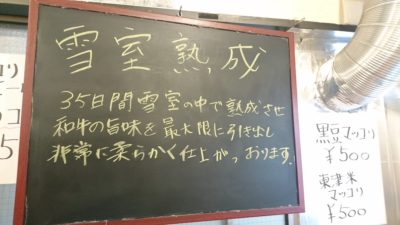 雪室熟成
35日間雪室の中で熟成させ
和牛の旨味を最大限に引き出し
非常に柔らかく仕上がっております。
黒豆マッコリ
¥500
東津米
マッコリ
¥500